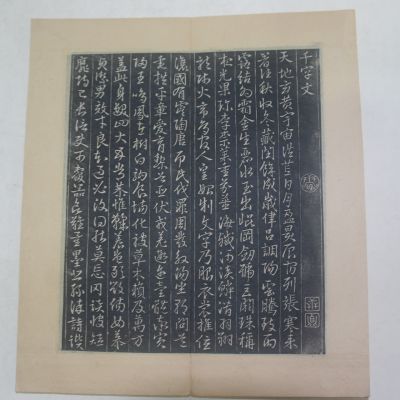 千字文
天地玄黃宇宙洪荒日月盈昃辰宿列張寒來
暑往秋收冬藏閏餘成歲律呂調陽雲騰致雨
露結為霜金生麗水玉出崑岡劍號巨闕珠稱
夜光果珍李柰菜重芥薑海鹹河淡鱗潛羽翔
龍師火帝鳥官人皇始制文字乃服衣裳推位
讓國有虞陶唐弔民伐罪周發殷湯坐朝問道
垂拱平章愛育黎首臣伏戎羌遐邇壹體率賓
歸王鳴鳳在樹白駒食場化被草木賴及萬方
蓋此身髮四大五常恭惟鞠養豈敢毀傷女慕
貞潔男效才良知過必改得能莫忘罔談彼短
靡恃己長信使可覆器欲難量墨悲絲染詩讚